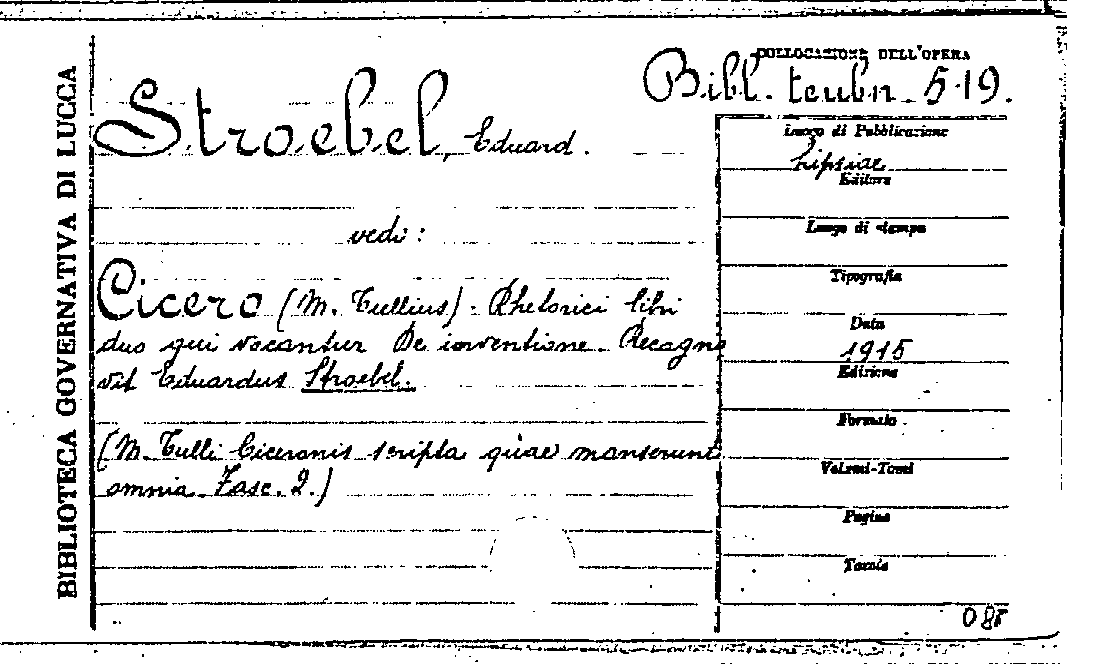 BIBLIOTECA GOVERNATIVA DI LUCCA
COLLOCAZIONE DELL'OPERA
Bibl. teubn. 519.
Stroebel, Eduard.
vedi:
Cicero (M. Tullius). Rhetorici libri
duo qui vocantur De inventione. Recagno
vit Eduardus Stroebel.
(M. Tulli Ciceronis scripta quae manserunt
omnia. Fasc. 2.)
Luogo di Pubblicazione
Lipsiae
Editore
Luogo di stampa
Tipografia
Data
1915
Edizione
Formato
Volumi-Tomi
Pagine
Tavole